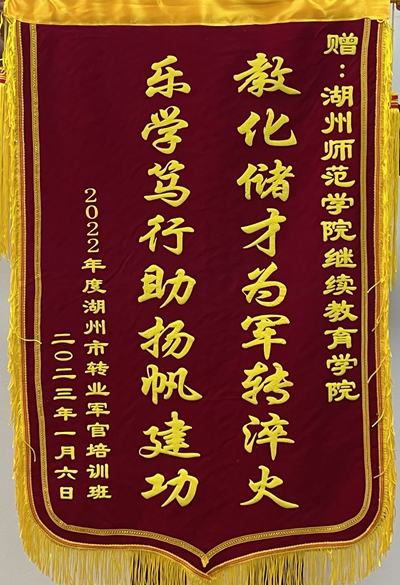 赠：湖州师范学院继续教育学院
教化储才为军转淬火
乐学笃行助扬帆建功
2022年度湖州市转业军官培训班
二〇二三年一月六日